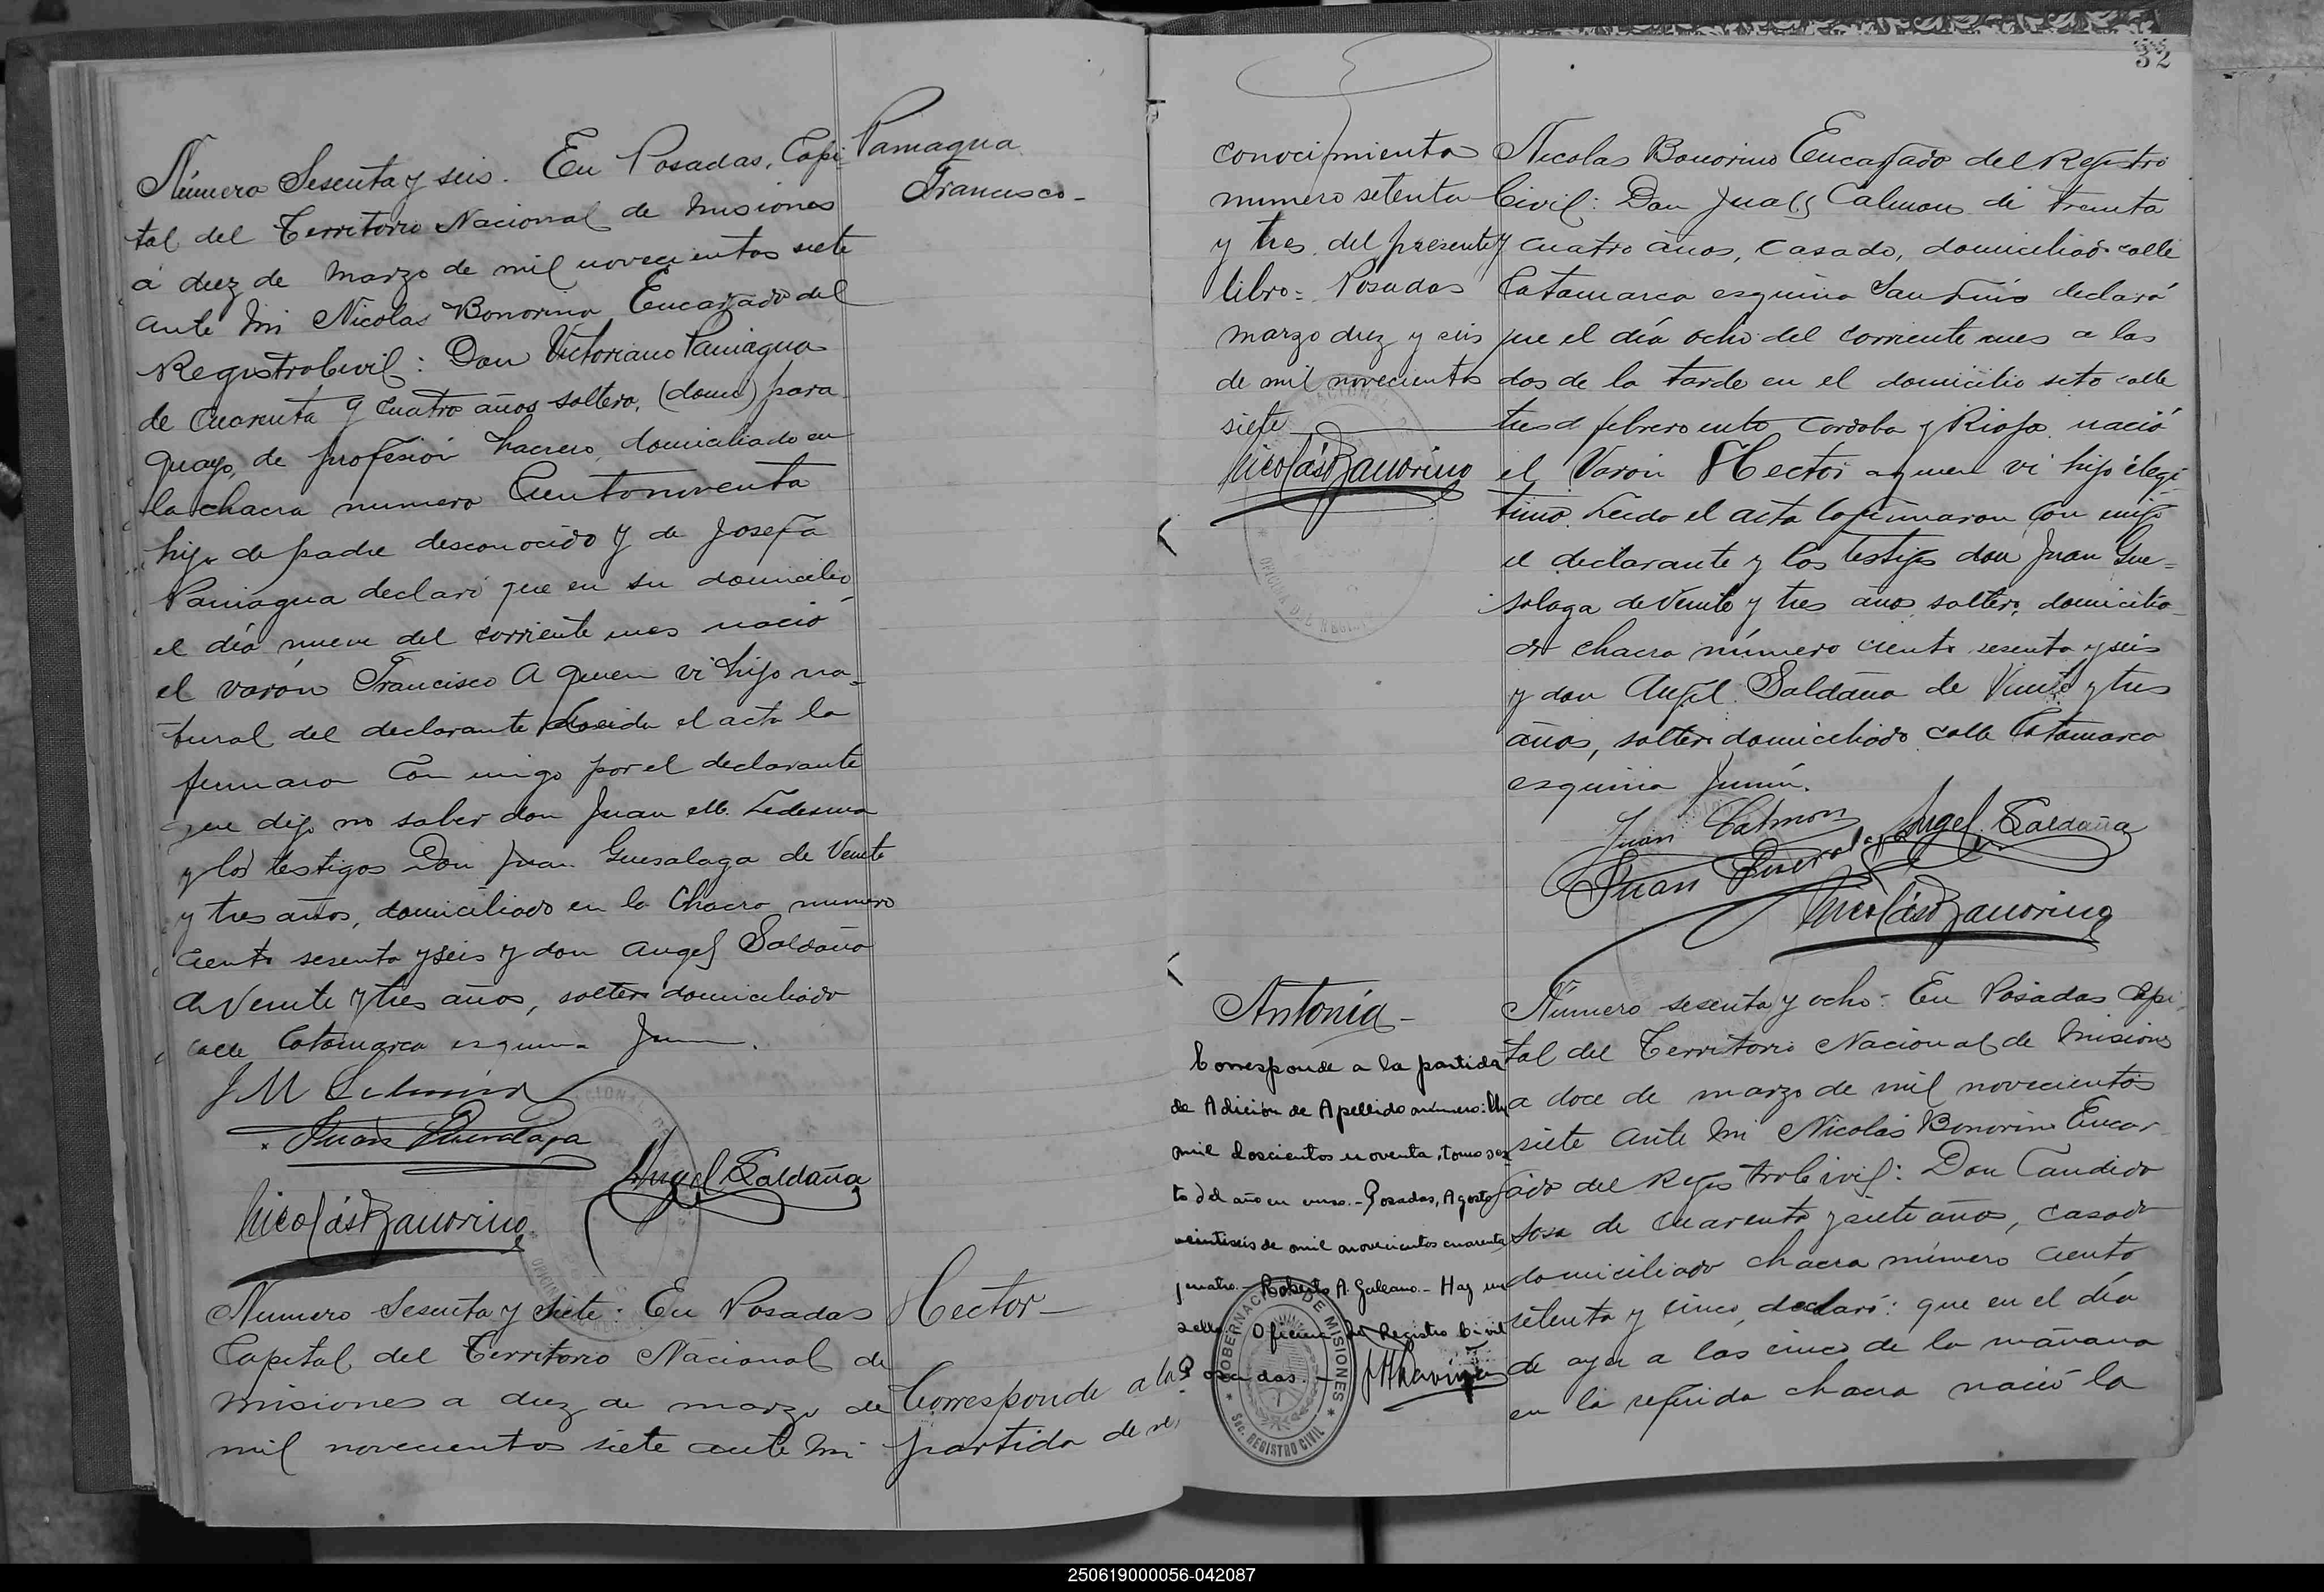 Número Sesenta y seis. En Posadas, Capi
tal del Territorio Nacional de Misiones
á diez de Marzo de mil novecientos siete
ante mi Nicolas Bonorino Encargado del
Registro Civil: Don Victoriano Paniagua
de Cuarenta y cuatro años soltero, (domi) para
guayo, de profesión domiciliado en
la chacra numero Ciento noventa
hijo de padre desconocido y de Josefa
Paniagua declaró que en su domicilio
el día nueve del corriente mes nació
el varón Francisco a quien vi hijo na=
tural del declarante Leida el acta la
firmaron con migo por el declarante
que dijo no saber don Juan M. Ledesma
y los testigos Don Juan Guesalaga de Veinte
y tres años, domiciliado en la Chacra numero
Ciento sesenta y seis y don Angel Saldaña
de Veinte y tres años, soltero domiciliado
calle Catamarca esquina Junin.
J M Ledesma
Juan Guesalaga
Angel Saldaña
Nicolás Bonorino
Paniagua
Francisco-
Numero Sesenta y siete: En Posadas
Capital del Territorio Nacional de
Misiones a diez de marzo de
mil novecientos siete ante mi
Hector-
Corresponde a la
partida de re
32
conocimiento
numero setenta
y tres del presente
libro= Posadas
marzo diez y seis
de mil novecientos
siete
Nicolás Bonorino
Nicolas Bonorino Encargado del Registro
Civil: Don Juan Calmon de treinta
y cuatro años, casado, domiciliado calle
Catamarca esquina San Luis declaró
que el día ocho del corriente mes a las
dos de la tarde en el domicilio sito calle
tres d febrero entre Cordoba y Rioja nació
el Varón Hector a quien vi hijo legi
timo. Leida el acta la firmaron con migo
el declarante y los testigos don Juan Gue=
salaga de Veinte y tres años soltero domicilia
do chacra número ciento sesenta y seis
y don Angel Saldaña de Veinte y tres
años, soltero domiciliado calle Catamarca
esquina Junin.
Juan Calmon
Angel Saldaña
Juan Guesalaga
Nicolás Bonorino
Antonia-
Corresponde a la partida
de Adición de Apellido número: Un
mil doscientos noventa, tomo sex
to del año en curso.- Posadas, Agosto
veintiseis de mil novecientos cuarenta
y cuatro.- Roberto A. Galeano.- Hay un
sello: Oficina del Registro Civil
Posadas.-
GOBERNACION DE MISIONES
Sec. REGISTRO CIVIL
Número sesenta y ocho: En Posadas Capi
tal del Territorio Nacional de Misiones
a doce de marzo de mil novecientos
siete ante mi Nicolás Bonorino Encar
gado del Registro Civil: Don Candido
Sosa de cuarenta y siete años, casado
domiciliado chacra número ciento
setenta y cinco, declaró: que en el día
de ayer a las cinco de la mañana
en la referida chacra nació la
250619000056-042087